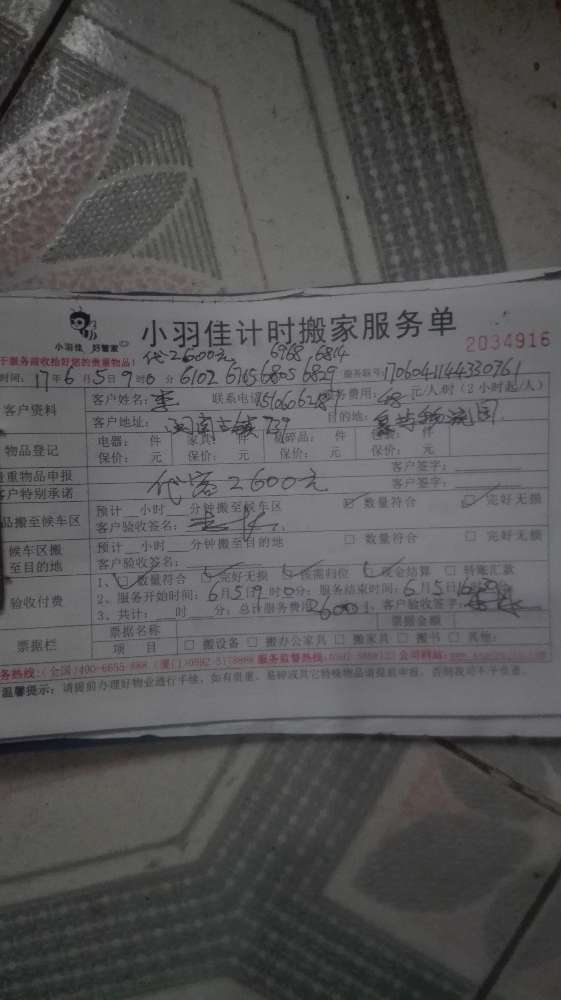 小羽佳 好管家
小羽佳计时搬家服务单
2034916
于服务前收拾好您的贵重物品!
代2600元 6768 6814
时间: 17年6月5日9时0分 6102 6745 6805 6829 服务联号: 1706041144330761
客户资料
客户姓名: 李 联系电话 务费用: 元/人/时(2小时起/人)
客户地址: 739 目的地:
物品登记
电器: 件 家具: 件 易碎品: 件 件
保价: 元 保价: 元 保价: 元 保价: 元
贵重物品申报 客户签字:
客户特别承诺 代客2600元 客户签字:
品搬至候车区
预计__小时__分钟搬至候车区 数量符合 完好无损
客户验收签名:
候车区搬至目的地
预计__小时__分钟搬至目的地 □ 数量符合 □ 完好无损
客户验收签名:
验收付费
1、 数量符合 完好无损 按需归位 现金结算 □ 转账汇款
2、服务开始时间: 6月5日9时0分; 服务结束时间: 6月5日
3、共计:__时__分; 总计服务费用2600元; 客户验收签字:
票据栏
票据名称 票据金额
项 目 □ 搬设备 □ 搬办公家具 □ 搬家具 □ 搬书 □ 其他:
务热线:(全国)400-6655-888 (厦门)0592-5178888 服务监督热线: 公司网站:
温馨提示: 请提前办理好物业通行手续, 如有贵重、易碎或其它特殊物品请提前申报, 否则我司不予负责。